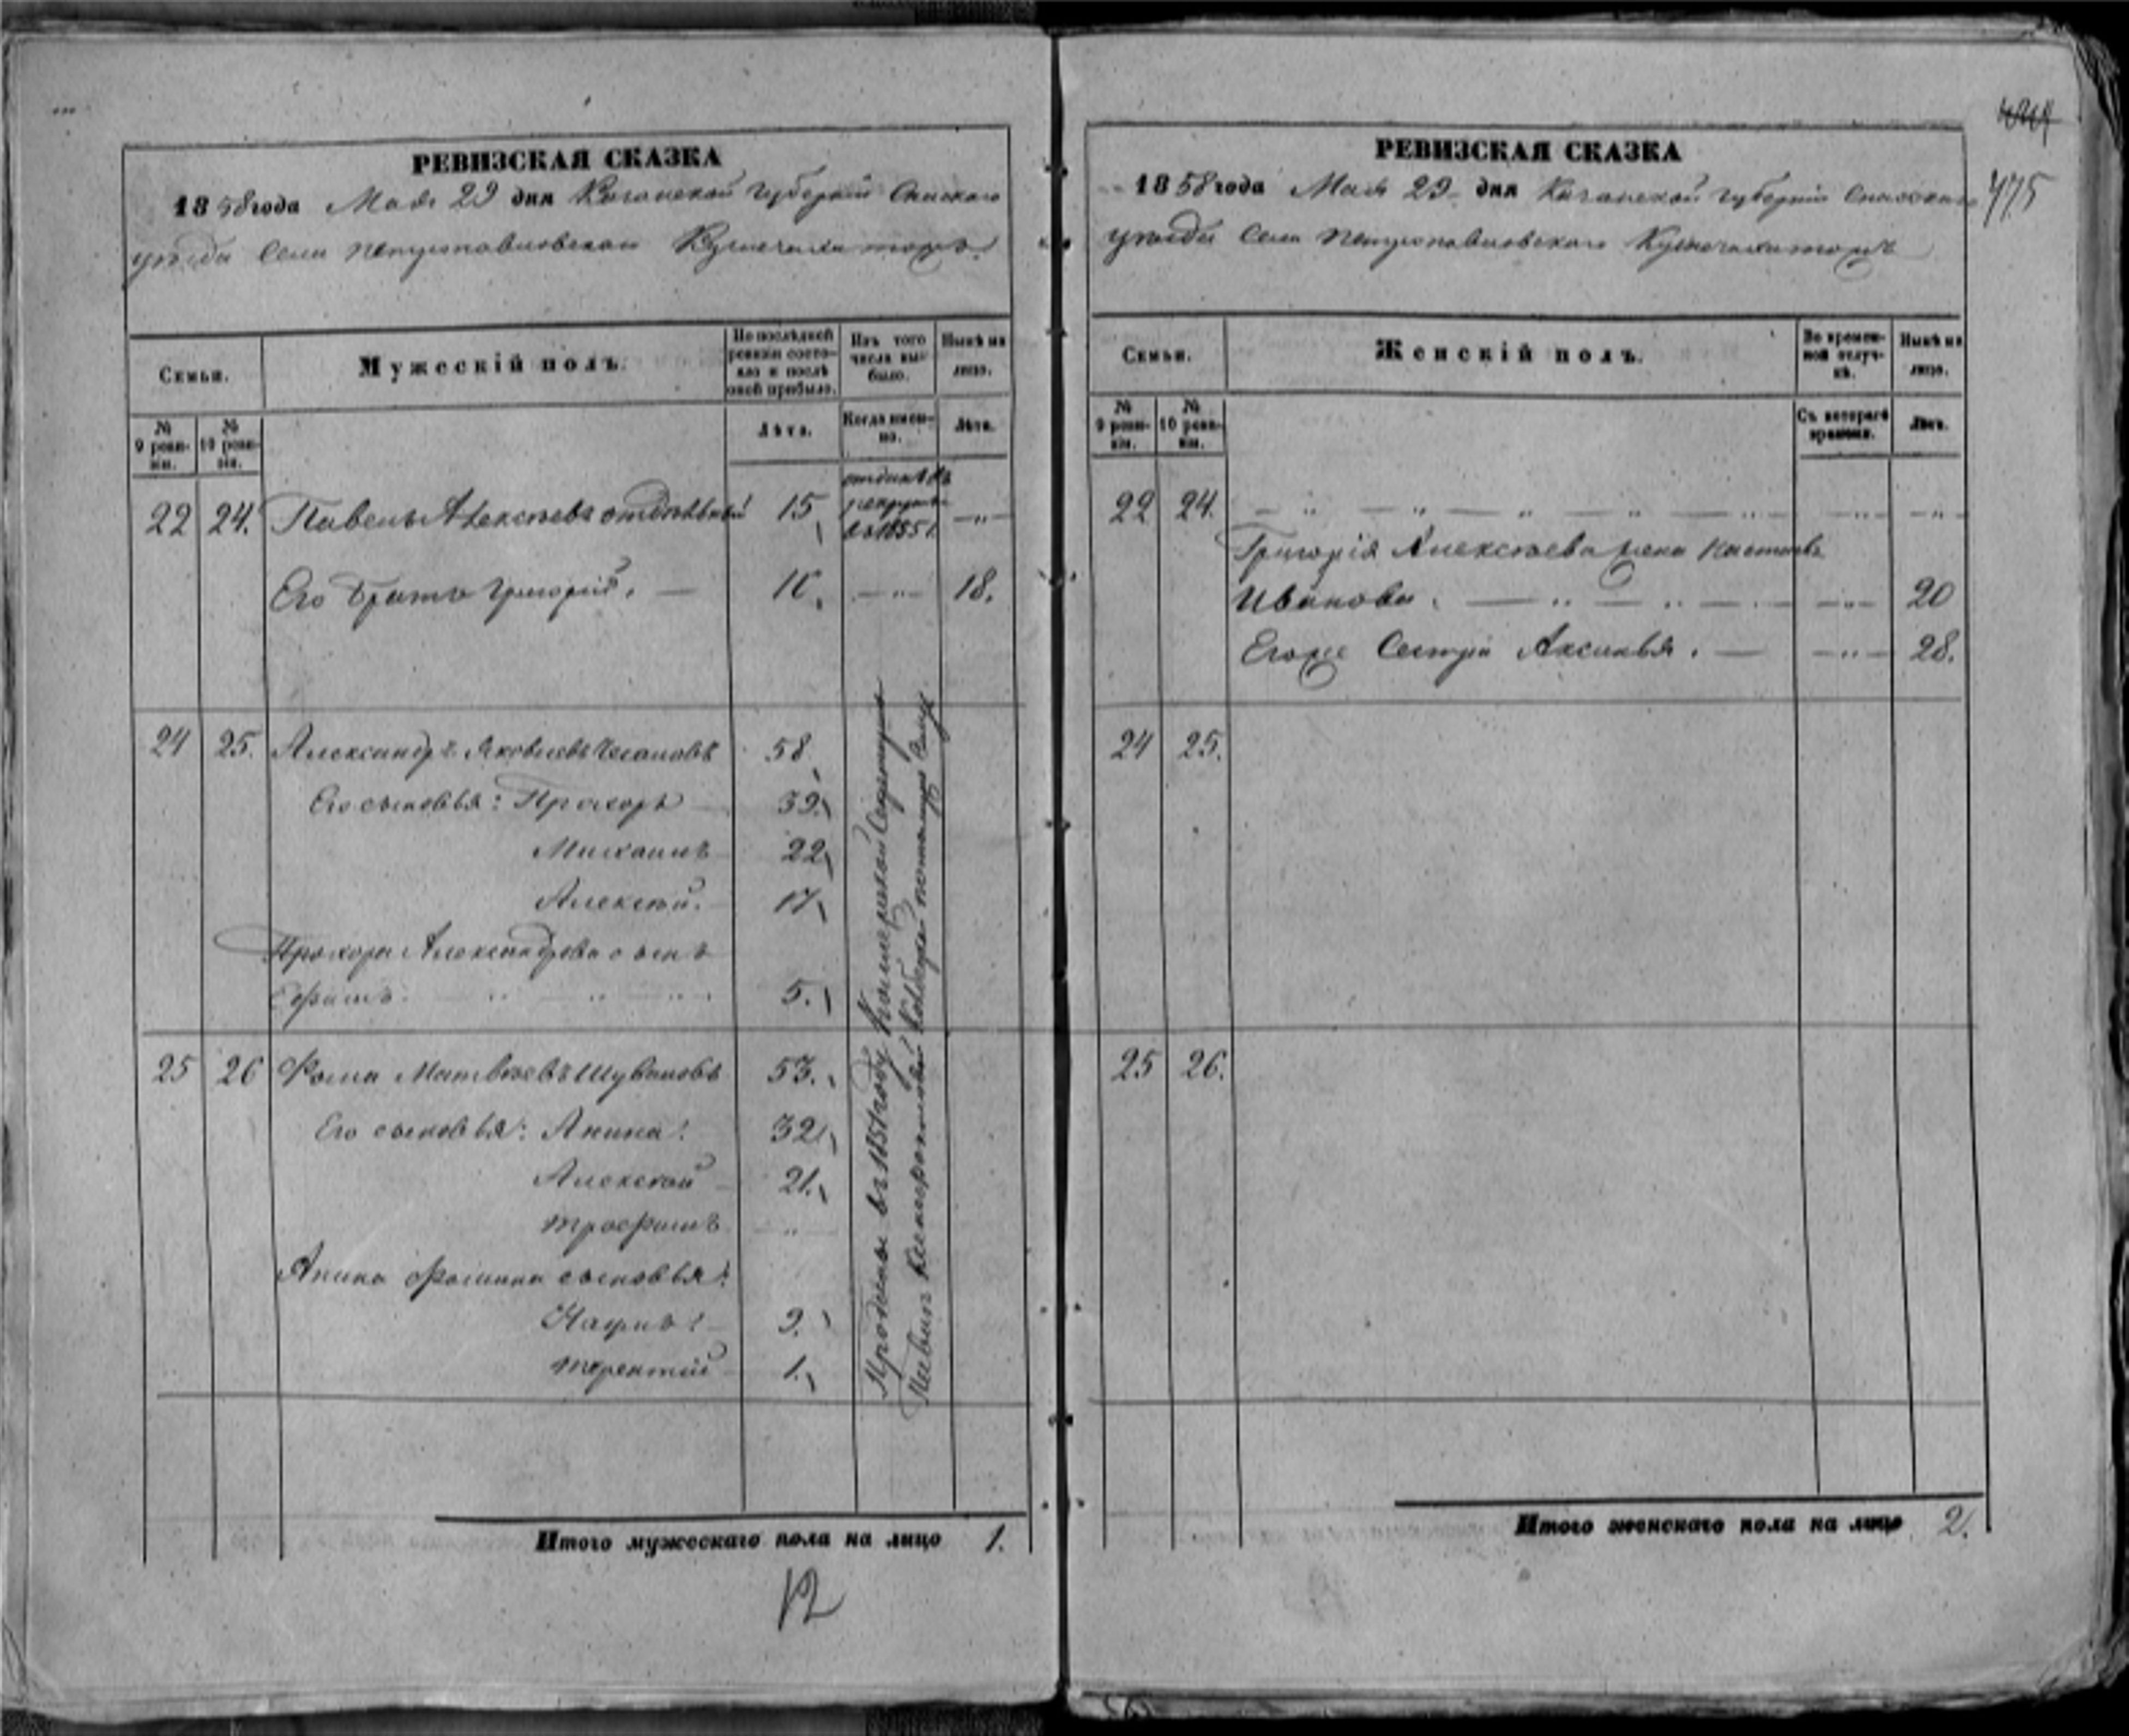 РЕВИЗСКАЯ СКАЗКА
1858 года Мая 29 дня Казанской губернии Спаского
уѣзда Села Петропавловскаго тожъ
Семьи.
Мужескій полъ.
По послѣдней ревизіи состояло и послѣ оной прибыло.
Изъ того числа выбыло.
Нынѣ на лицо.
№ 9 ревизіи.
№ 10 ревизіи.
Лѣта.
Когда именно.
Лѣта.
22 24. Павелъ Алексѣевъ 15 отданъ въ рекруты въ 1855 г. — „ —
Его братъ Григорій. — 10. — „ — 18.
24 25. Александръ Яковлевъ 58
Его сыновья: Прохоръ 39.
Михаилъ 22
Алексѣй. 17
Прохора Александрова сынъ
Ефимъ. 5.
25 26 Фома Матвѣевъ 53.
Его сыновья: Аника: 32
Алексѣй 21.
Трофимъ „
Аники Фомина сыновья:
9.
Терентій 1.
Проданы въ 1851 году
Итого мужескаго пола на лицо 1.
12
РЕВИЗСКАЯ СКАЗКА
1858 года Мая 29 дня Казанской губерніи Спаскаго
уѣзда Села Петропавловскаго тожъ
475
Семьи.
Женскій полъ.
Во временной отлучкѣ.
Нынѣ на лицо.
№ 9 ревизіи.
№ 10 ревизіи.
Съ котораго времени.
Лѣта.
22 24. — „ — „ — „ — „ —
Григорія Алексѣева жена
Иванова. — „ — „ — — „ — 20
Его же Сестра Аксинья. — — „ — 28.
24 25.
25 26.
Итого женскаго пола на лицо 2.